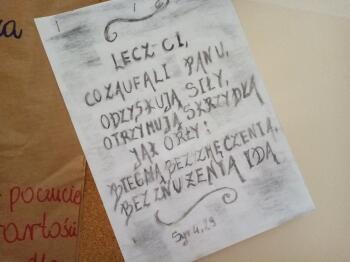 LECZ CI,
CO ZAUFALI PANU,
ODZYSKUJĄ SIŁY,
OTRZYMUJĄ SKRZYDŁA
JAK ORŁY:
BIEGNĄ BEZ ZMĘCZENIA,
BEZ ZNUŻENIA IDĄ
poczucie
wartości